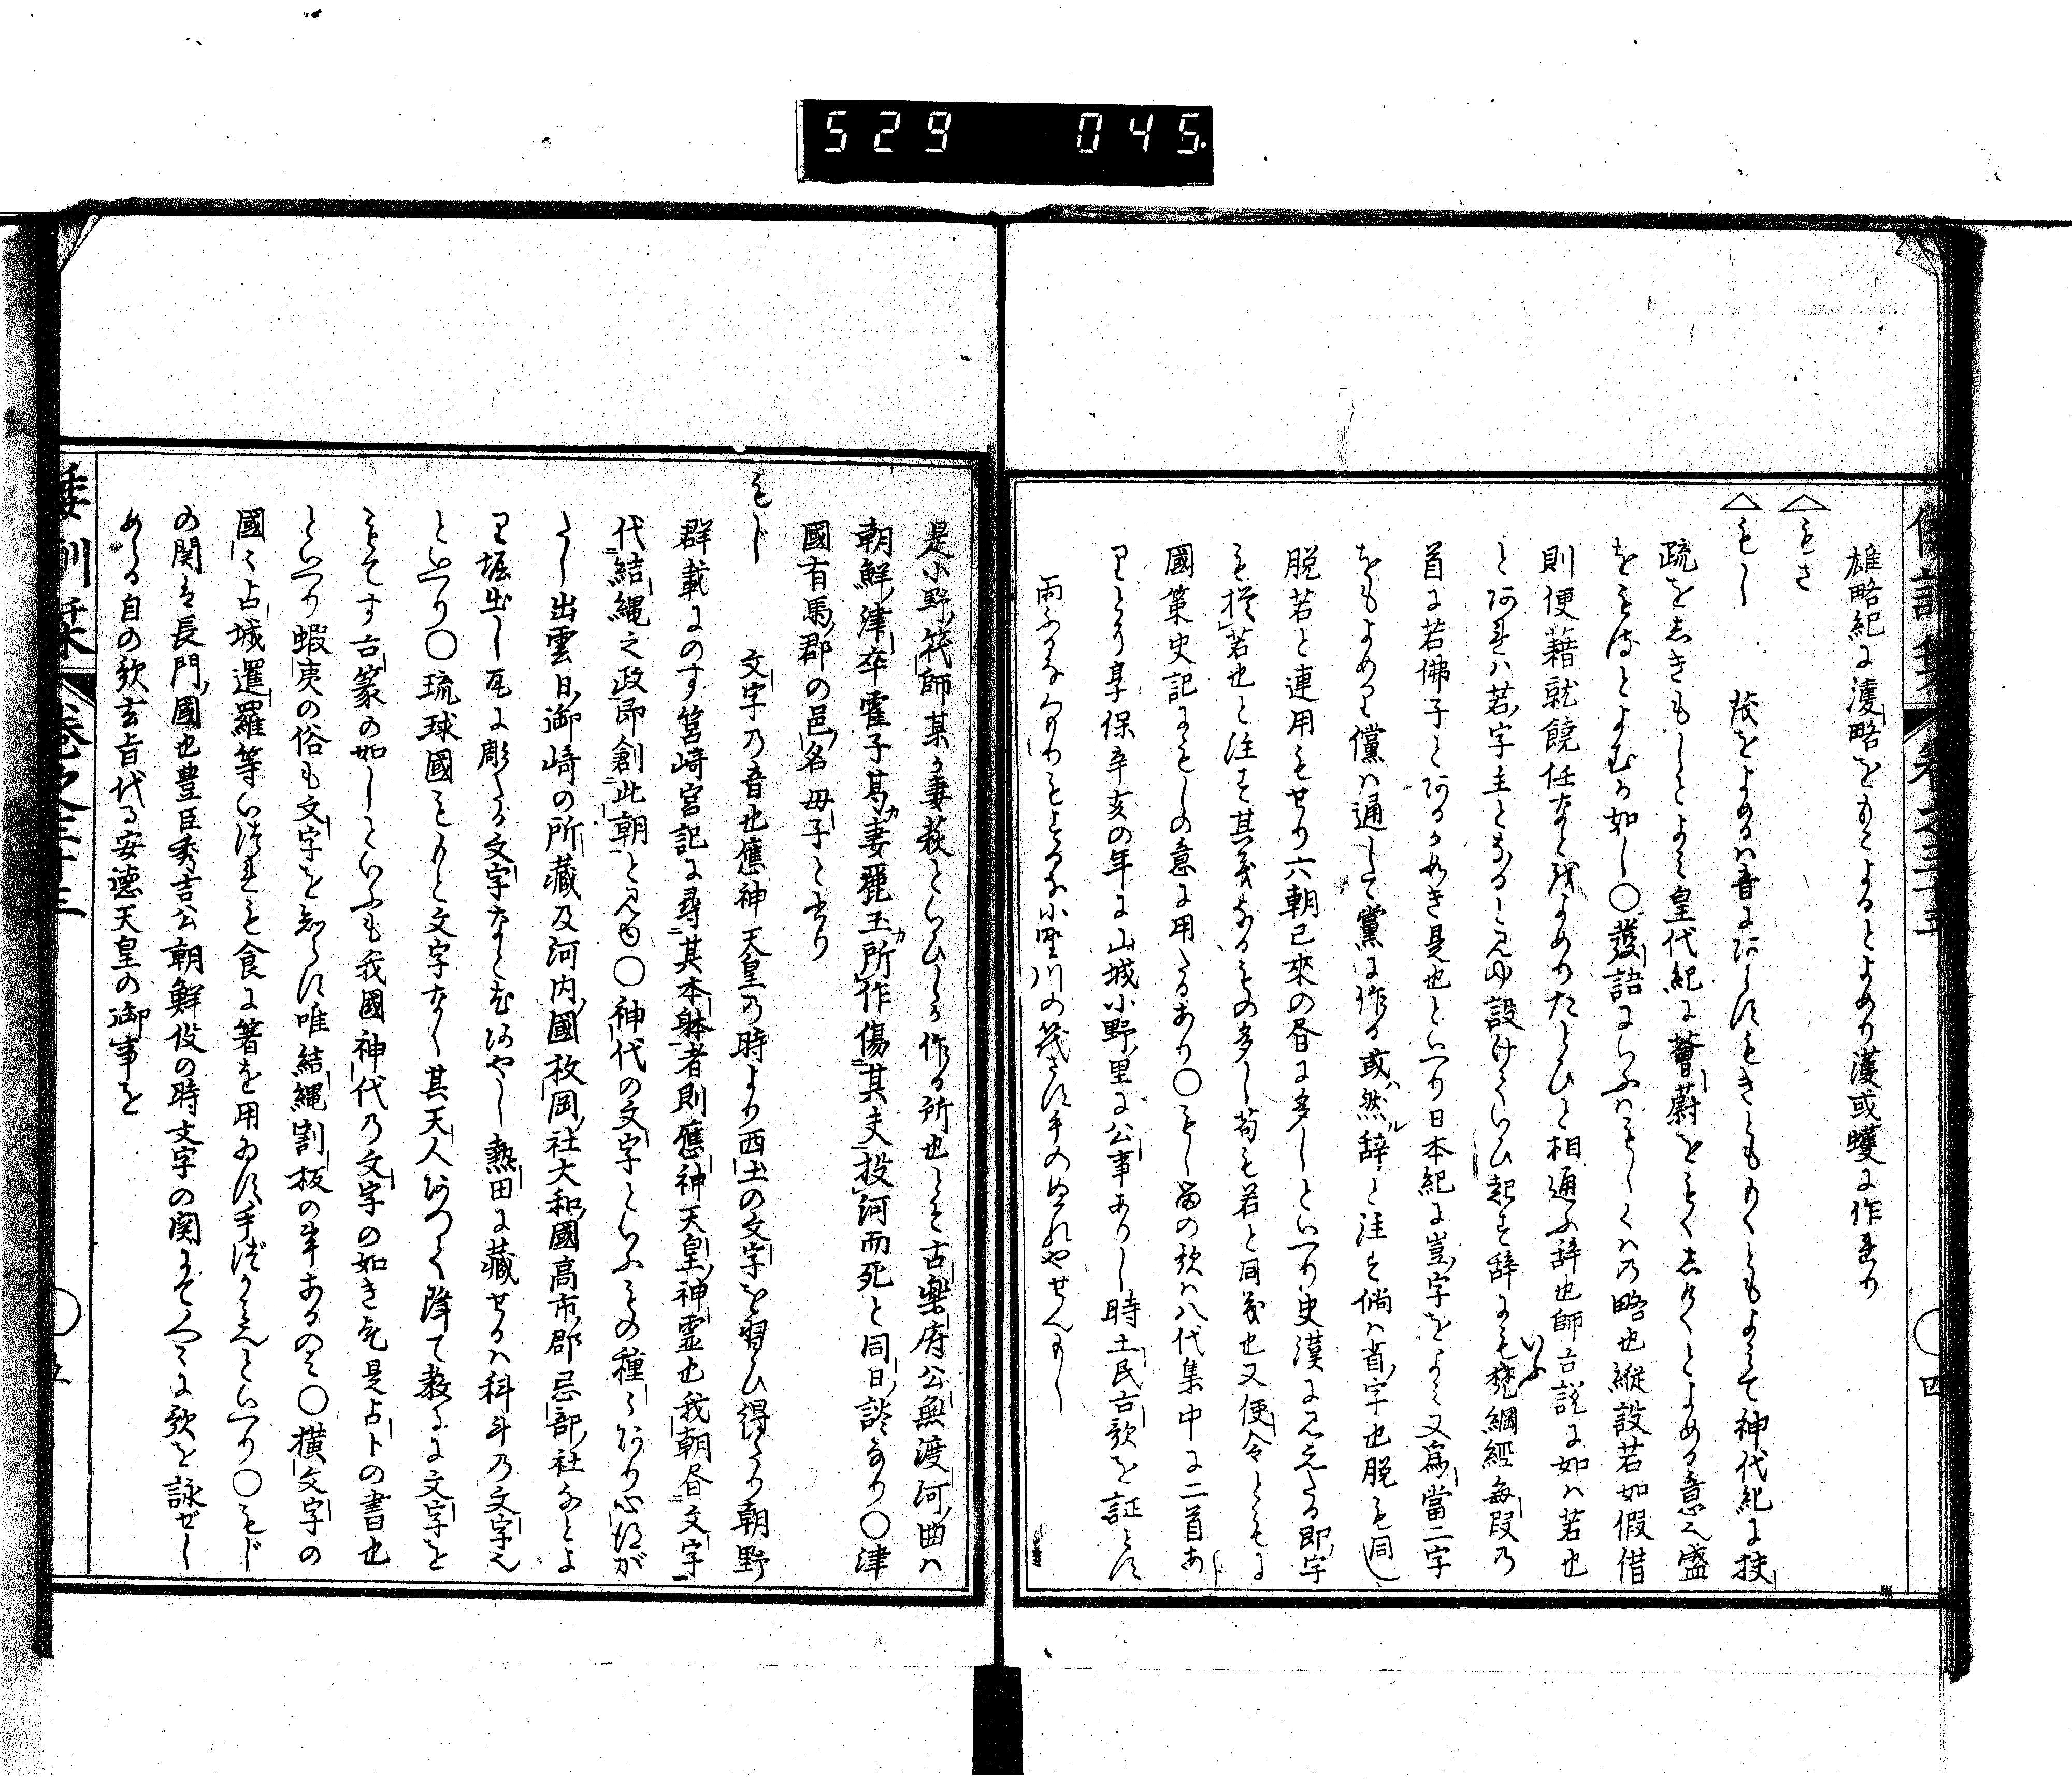 529 045.
倭訓栞 巻之三十三 ○ 四
雄略紀に濩略をもこよるとよめり濩或蠖に作れり
△もさ
△もし 段をよめるは音にあらすもきともかくともよみて神代紀に扶
疏をしきもしとよみ皇代紀に薈蔚をもくしけくとよめる意之盛
をもすとよむか如し○發語にいふはもしくは乃略也縦設若如假借
則便藉就饒任なと我よめりたとひと相通ふ辞也師古説に如は若也
とあれは若字主となると見ゆ設けていひ起す辞にもいふ梵網經毎段乃
首に若佛子とあるか如き是也といへり日本紀に豈字をよみ又為當二字
をもよめり儻は通して黨に作る或ハ然ル辞と注す倘は省字也脱も同し
脱若と連用もせり六朝已來の書に多しといへり史漢に見えたる即字
も猶若也と注す其義なるもの多し苟も若と同義也又便令ともに
國策史記にもしの意に用たるあり○もし畄の歌は八代集中に二首あ
りとそ享保辛亥の年に山城小野里に公事ありし時土民古歌を証とす
雨ふるな小野川の筏さす手のぬれやせんもし
是小野筏師某か妻萩といひしか作る所也とそ古樂府公無渡河曲は
朝鮮津卒霍子其カ妻麗玉カ所作傷其夫投河而死と同日談なり○津
國有馬郡の邑名毋子と書り
もじ 文字乃音也應神天皇乃時より西土の文字を習ひ得たり朝野
群載にのす筥﨑宮記に尋其本躰者則應神天皇神霊也我朝書文字
代結縄之政即創此朝と見ゆ○神代の文字といふもの種々あり心得が
たし出雲日御﨑の所藏及河内國枚岡社大和國高市郡忌部社なとよ
り堀出し瓦に彫たる文字なともあやし熱田に藏せるは科斗乃文字之
といへり○琉球國もと文字なし其天人あつて降て教るに文字を
もてす古篆の如しといふも我國神代乃文字の如き疑是占卜の書也
といへり蝦夷の俗も文字をしらす唯結縄割板の事あるのミ○横文字の
國々占城暹羅等いつれも食に箸を用ゐす手づかミとといへり○もじ
の関は長門國也豊臣秀吉公朝鮮伇の時文字の関にてくつくに歌を詠ぜし
める自の歌玄旨代る安徳天皇の御事を
倭訓栞 巻之三十三 ○ 五